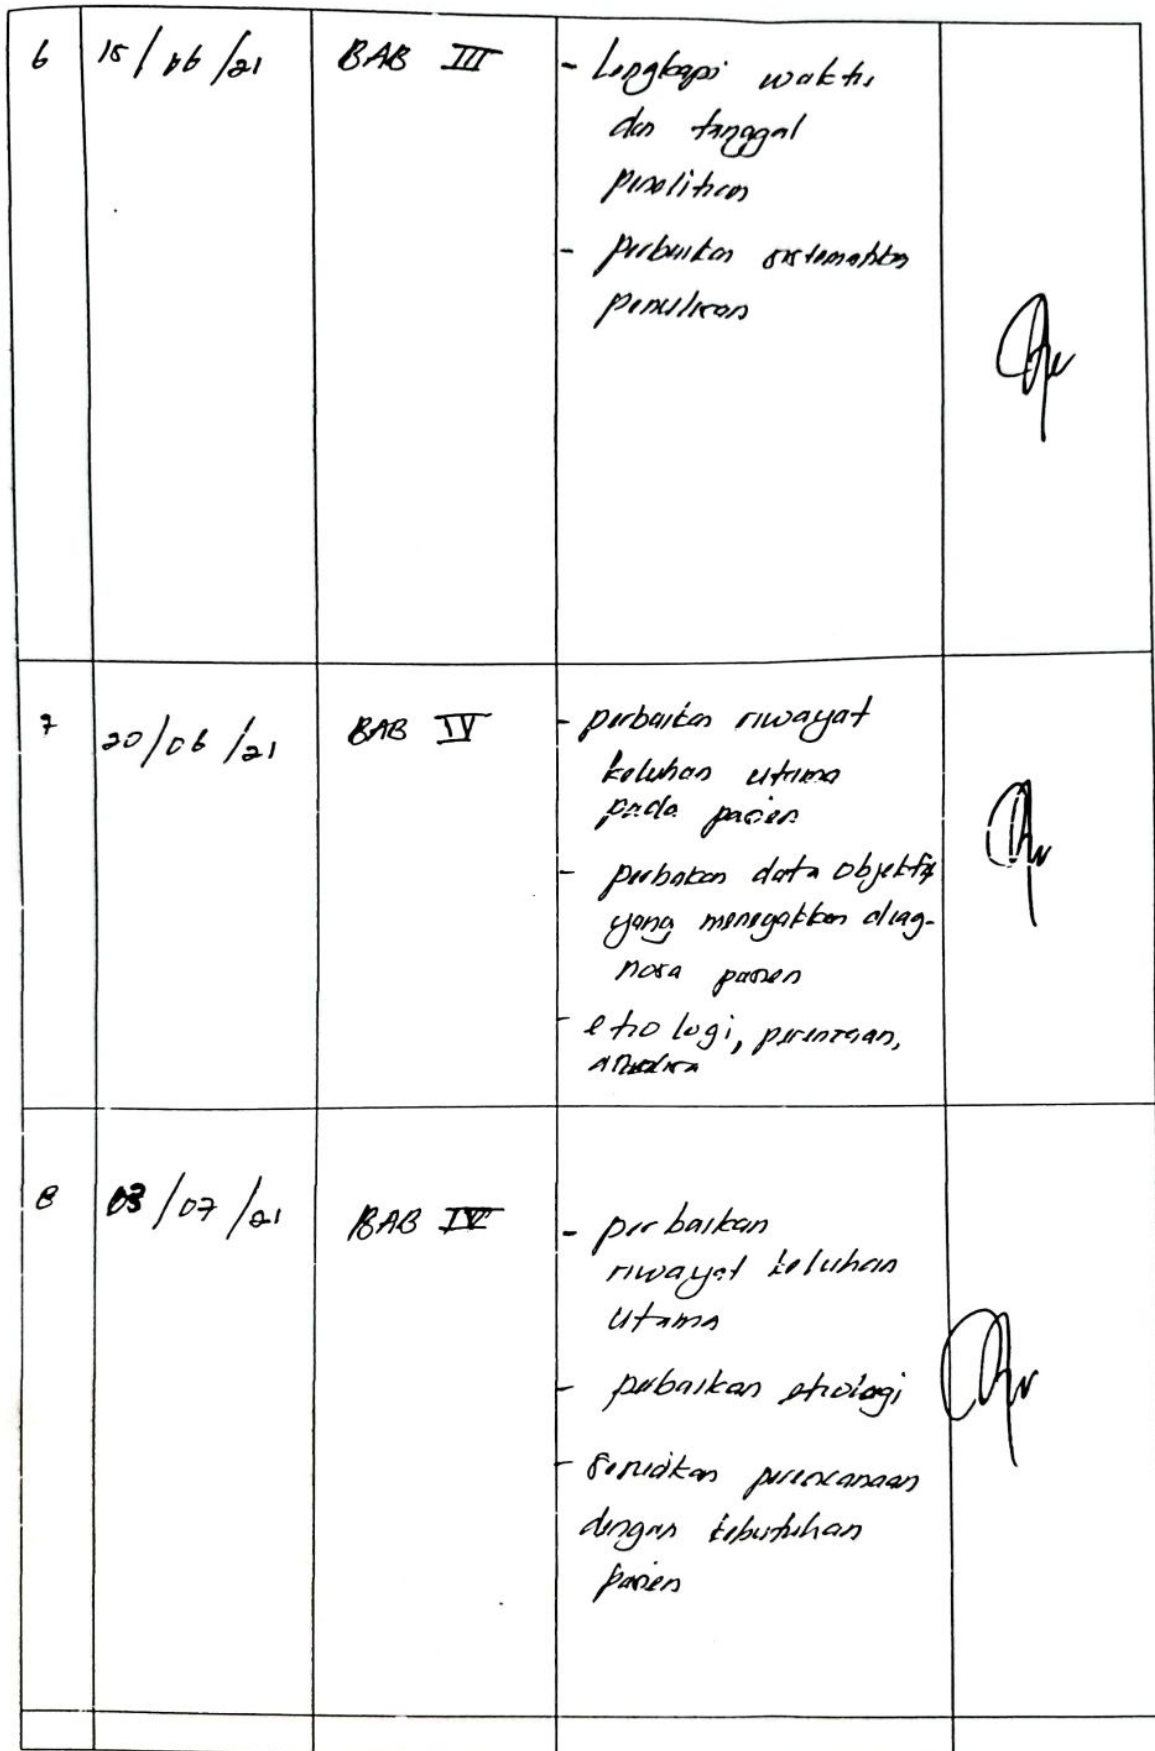 6 15/06/21 BAB III - Lengkapi waktu
dan tanggal
penelitian
- perbaikan sistematika
penulisan
7 20/06/21 BAB IV - perbaikan riwayat
keluhan utama
pada pasien
- perbaikan data objektif
yang menegakkan diag-
nosa pasien
- etiologi,
8 03/07/21 BAB IV - perbaikan
riwayat keluhan
utama
- perbaikan etiologi
- Sesuaikan perencanaan
dengan kebutuhan
pasien